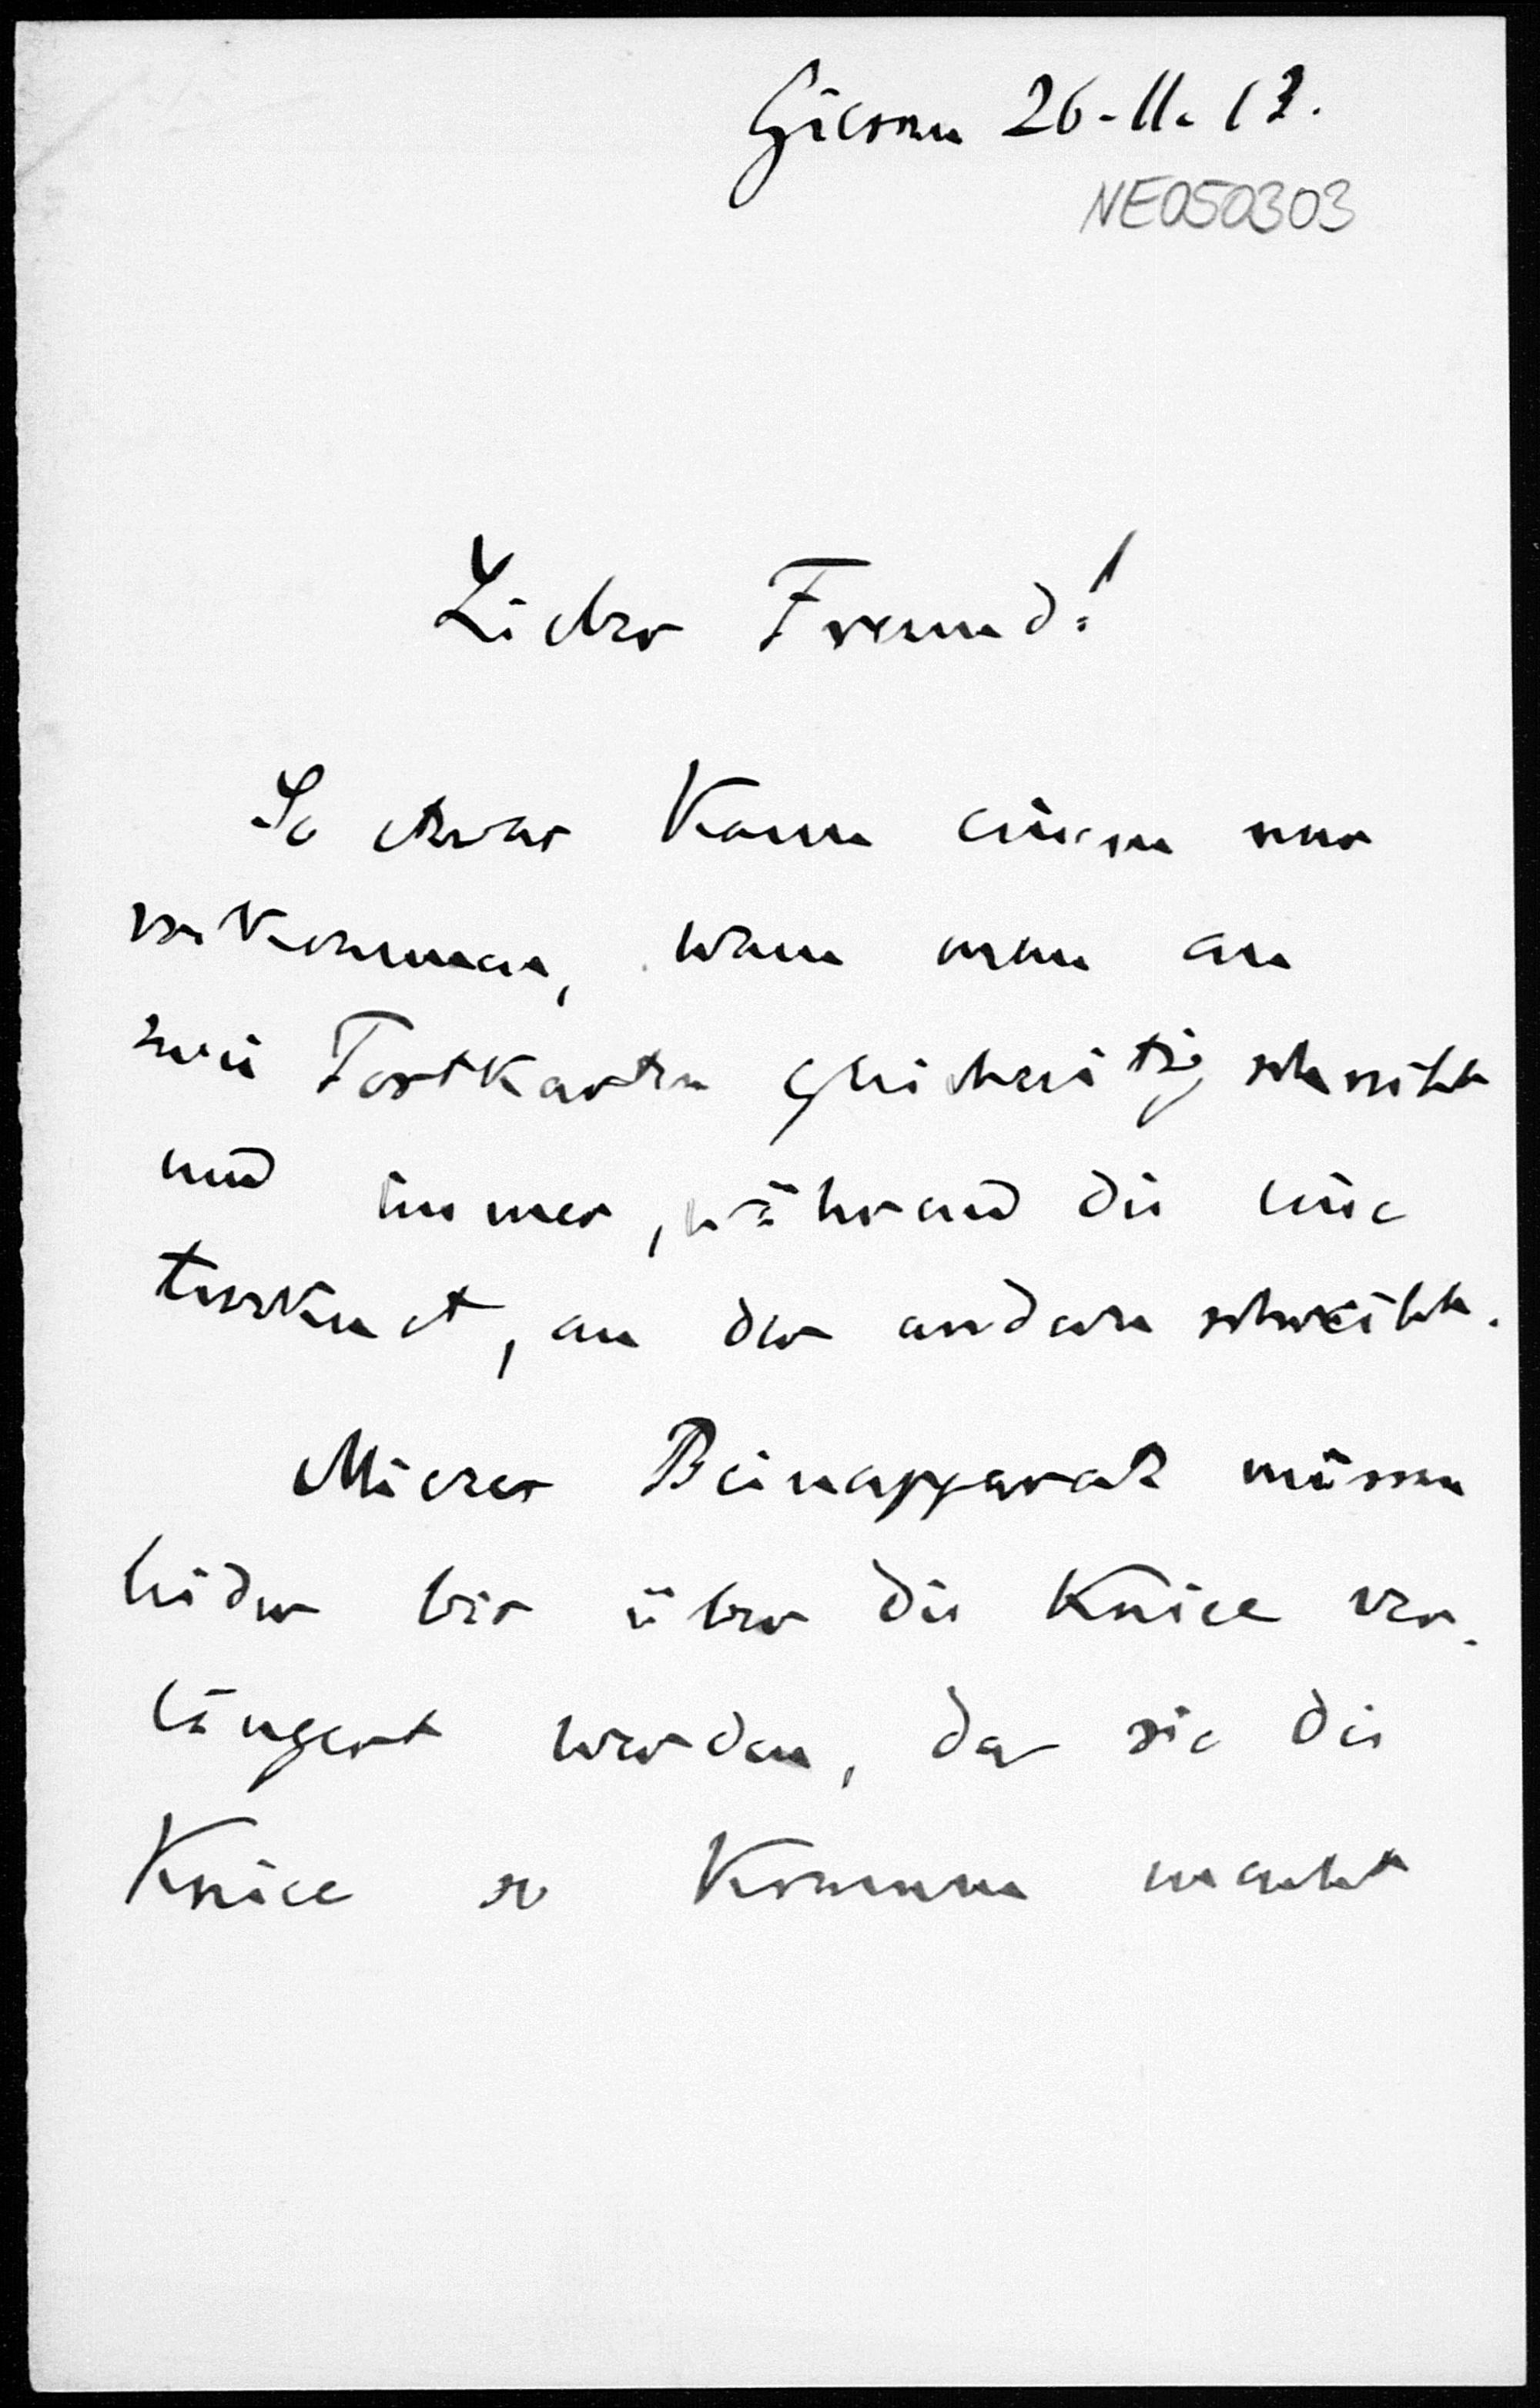 Giessen 26.II.13.
NE050303
Lieber Freund!
So etwas kann einem nur
vorkommen, wenn man an
zwei Postkarten gleichzeitig schreibt
und immer, während die eine
trocknet, an der andern schreibt.
Beinapparate müssen
leider bis über die Kniee ver-
längert werden, da sie die
Kniee so krumm macht